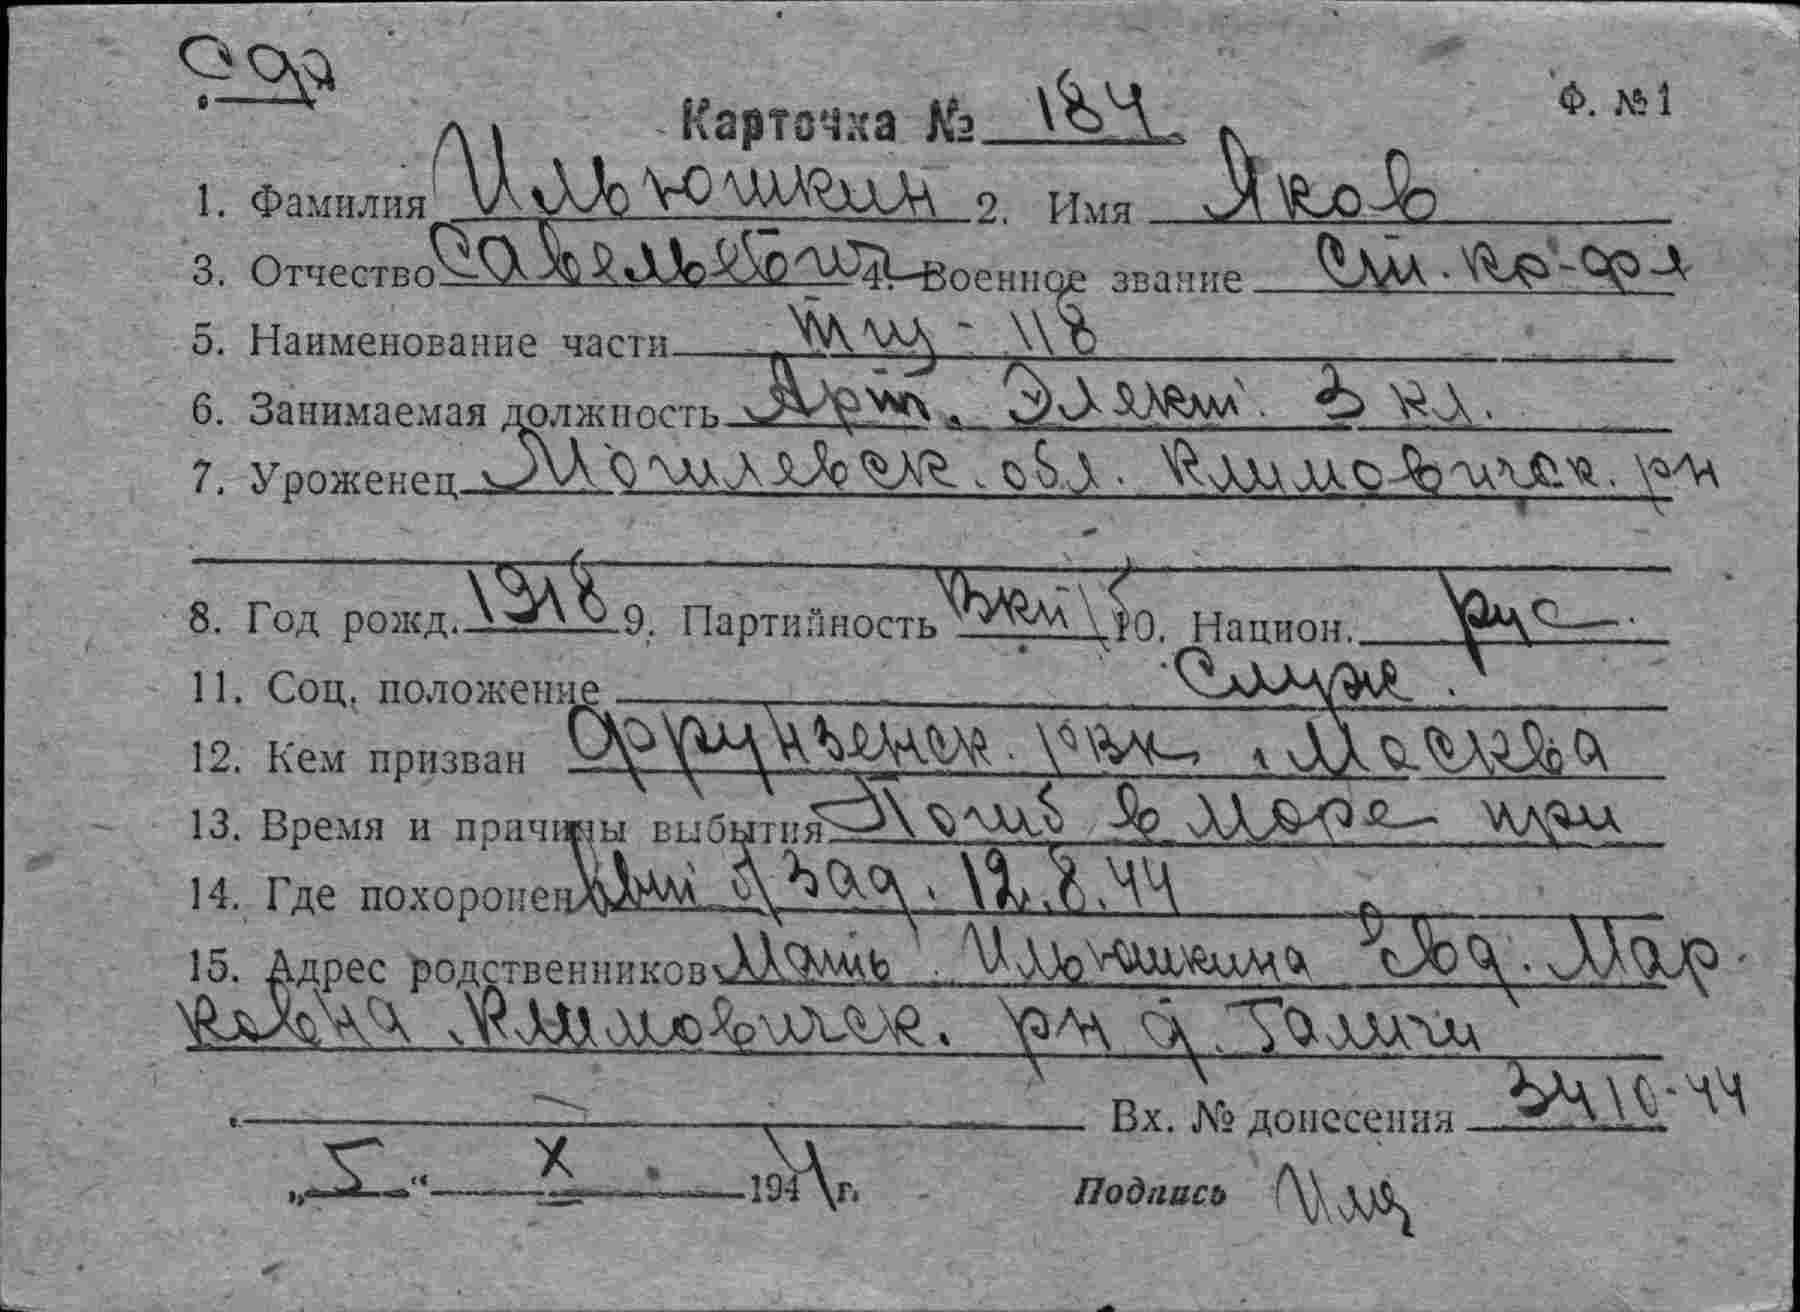 Ф. №1
Карточка № 184
1. Фамилия Ильюшкин 2. Имя Яков
3. Отчество Савельевич 4. Военное звание Ст. кр-фл
5. Наименование части тщ-118
6. Занимаемая должность Арт. Элект. 3 кл.
7. Уроженец Могилевск. обл. Климовичск. р-н
8. Год рожд. 1918 9. Партийность ВКП/б 10. Национ. рус.
11. Соц. положение Служ.
12. Кем призван Фрунзенск. рвк, Москва
13. Время и причины выбытия Погиб в море при
14. Где похоронен вып б/зад. 12.8.44
15. Адрес родственников Мать Ильюшкина Евд. Мар
ковна Климовичск. р-н д. Галичи
Вх. № донесения 3410-44
„5“ X 1944 г. Подпись